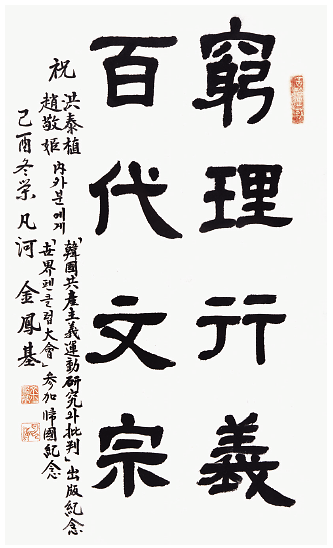 窮理行義
百代文宗
祝
洪泰植
趙敬姬
內外분에게
「韓國共産主義運動研究와批判」出版紀念
「世界펜클럽大會」參加歸國紀念
己酉冬 凡河 金鳳基